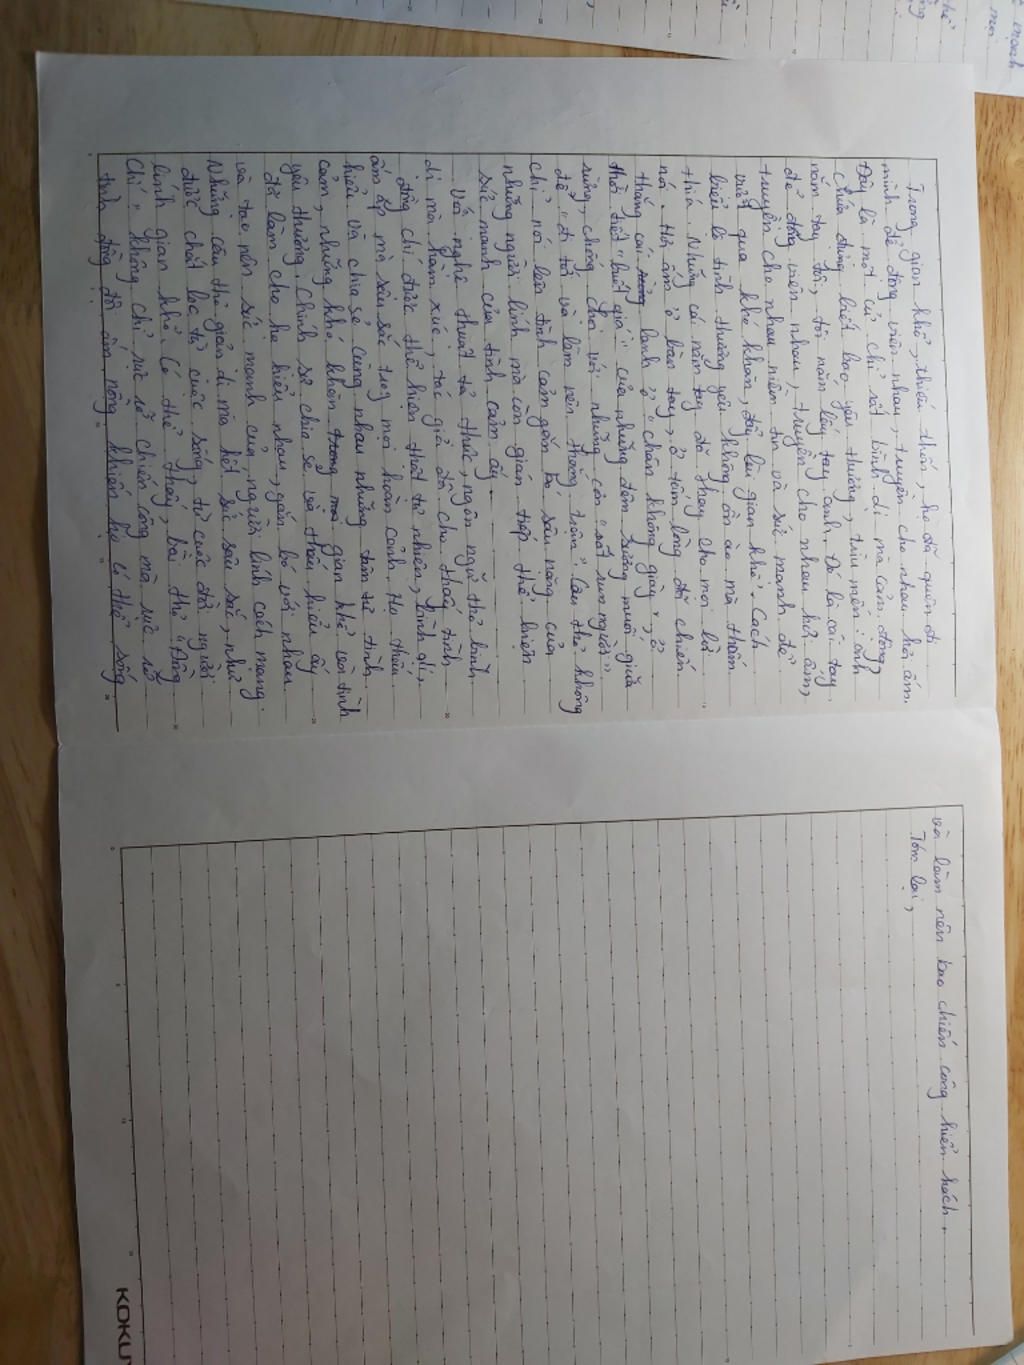 Trong gian khổ, thiếu thốn, họ đã quên đi
mình để động viên nhau, truyền cho nhau hơi ấm.
Đây là một cử chỉ rất bình dị mà cảm động,
chứa đựng biết bao yêu thương, trìu mến: anh
nắm tay tôi, tôi nắm lấy tay anh. Đó là cái tay
để động viên nhau, truyền cho nhau hơi ấm,
truyền cho nhau niềm tin và sức mạnh để
vượt qua khó khăn, đẩy lùi gian khổ. Cách
biểu lộ tình thương yêu không ồn ào mà thấm
thía. Những cái nắm tay đó thay cho mọi lời
nói. Hơi ấm ở bàn tay, ở tấm lòng đã chiến
thắng cái lạnh ở "chân không giày", ở
thời tiết "buốt giá" của những đêm sương muối giữa
rừng, chống chọi với những cơn "sốt run người"
để "đi tới và làm nên thắng trận" Câu thơ không
chỉ nói lên tình cảm gắn bó sâu nặng của
những người lính mà còn gián tiếp thể hiện
sức mạnh của tình cảm ấy.
Với nghệ thuật tả thực, ngôn ngữ thơ bình
dị mà hàm xúc, tác giả đã cho thấy tình
đồng chí được thể hiện thật tự nhiên, bình dị,
ấm áp mà sâu sắc trong mọi hoàn cảnh. Họ thấu
hiểu và chia sẻ cùng nhau những tâm tư tình
cảm, những khó khăn gian khổ và tình
yêu thương. Chính sự chia sẻ và thấu hiểu ấy
đã làm cho họ hiểu nhau, gắn bó với nhau
và tạo nên sức mạnh của người lính cách mạng.
Những câu thơ giản dị mà hết sức sâu sắc, như
được chắt lọc từ cuộc sống, từ cuộc đời người
lính gian khổ. Có thể thấy, bài thơ "Đồng
Chí" không chỉ rực rỡ chiến công mà rực rỡ
tình đồng đội ấm nồng khiến họ có thể sống
và làm nên bao chiến công hiển hách.
Tóm lại,